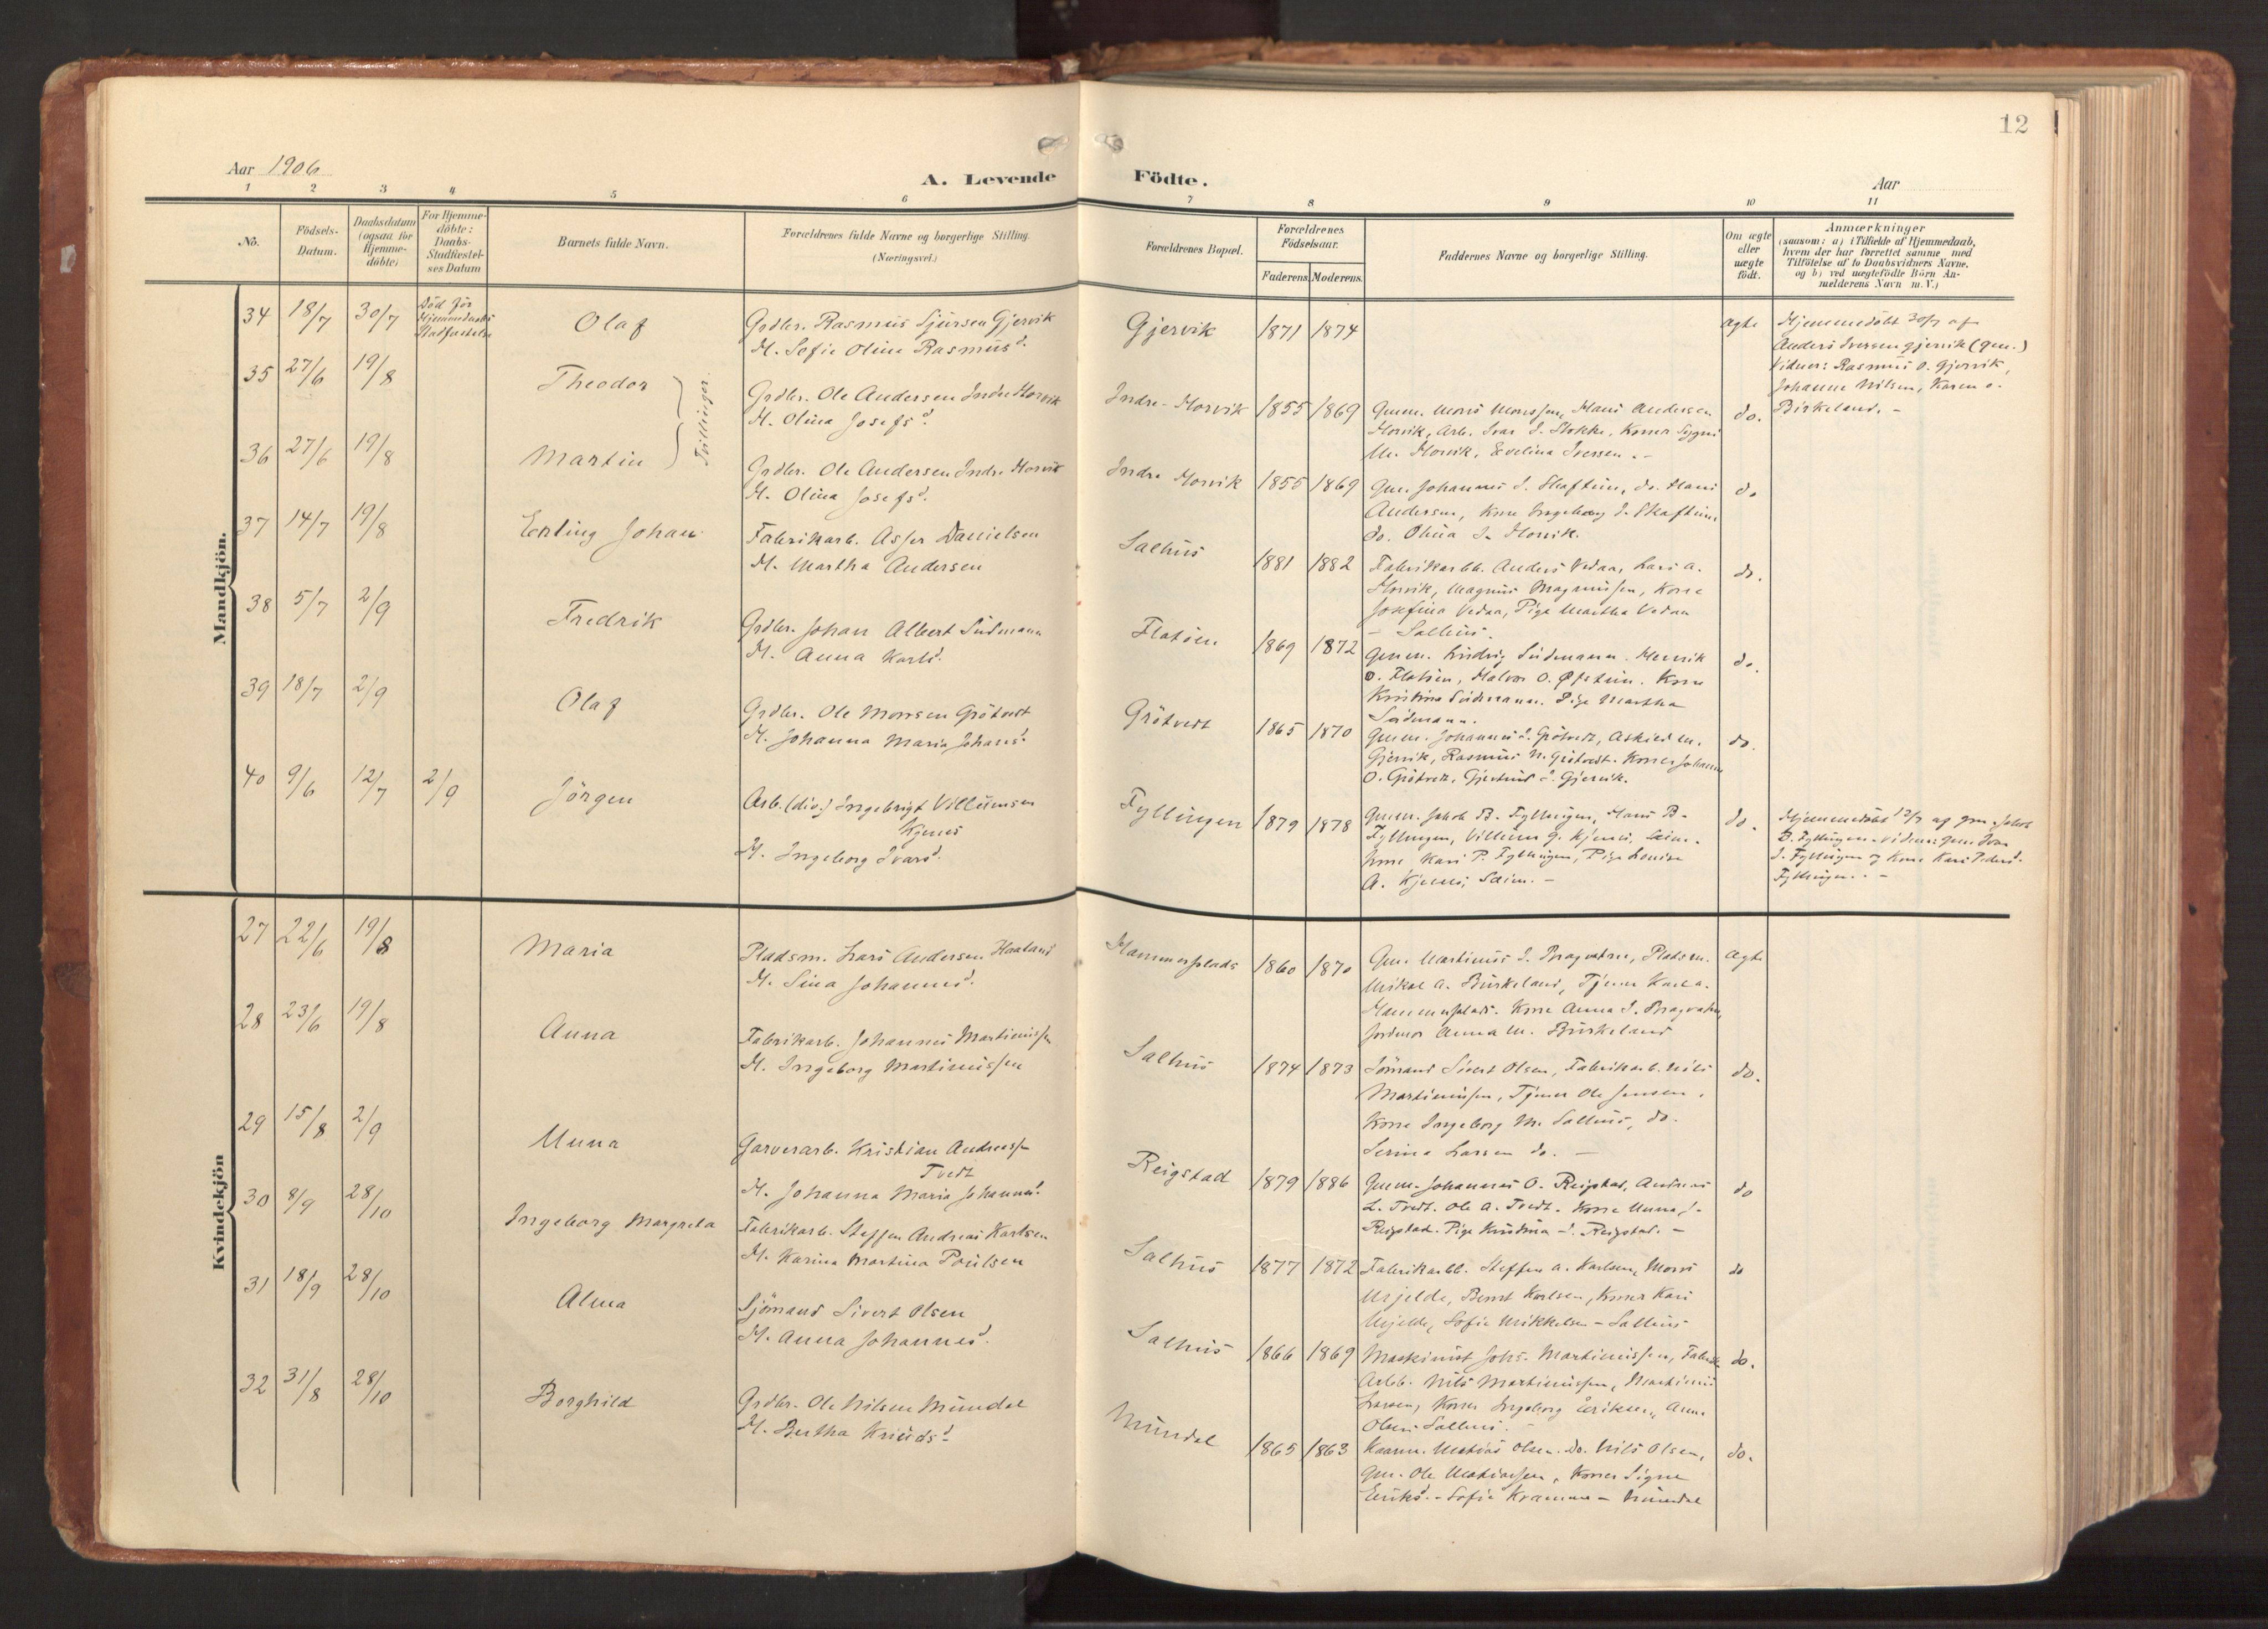 12
Aar 1906
A. Levende Födte.
Aar
1 2 3 4 5 6 7 8 9 10 11
No.
Födsels-Datum.
Daabsdatum (ogsaa for Hjemme-döbte)
For Hjemme-döbte: Daabs-Stadfæstel-ses Datum
Barnets fulde Navn.
Forældrenes fulde Navne og borgerlige Stilling. (Næringsvei.)
Forældrenes Bopæl.
Forældrenes Födselsaar.
Faderens. Moderens.
Faddernes Navne og borgerlige Stilling.
Om ægte eller uægte födt.
Anmærkninger
(saasom: a) i Tilfælde af Hjemmedaab,
hvem der har forrettet samme med
Tilföielse af to Daabsvidners Navne,
og b) ved uægtefödte Börn An-
melderens Navn m. V.)
Mandkjön.
34 18/7 30/7 Död för Hjemmedaabs Stadfæstelse Olaf
Grdbr. Rasmus Sjursen Gjervik
H. Sofie Oline Rasmusd.
Gjervik 1871 1874 ægte
Hjemmedöbt 30/7 af
Anders Iversen Gjervik (gm.)
Vidner: Rasmus O. Gjervik,
Johanne Nilsen, Karen O.
Birkeland. -
35 27/6 19/8 Theodor
Tvillinger.
Grdbr. Ole Andersen Indre Horvik
H. Olina Josefsd.
Indre-Horvik 1855 1869
Gmm. Mons Monssen, Hans Andersen
Horvik, Arb. Ivar J. Stokke, Koner
M. Horvik, Evelina Iversen. -
do.
36 27/6 19/8 Martin
Grdbr. Ole Andersen Indre Horvik
H. Olina Josefsd.
Indre Horvik 1855 1869
Gm. Johannes J. Skaftun, do. Hans
Andersen, Kone Ingeborg J. Skaftun
do. Olina J. Horvik.
do
37 14/7 19/8 Erling Johan
Fabrikarb. Asser Danielsen
H. Martha Andersen
Salhus 1881 1882
Fabrikarbb. Anders Vedaa, Lars A.
Horvik, Magnus Magnussen, Kone
Josefina Vedaa, Pige Martha Vedaa
- Salhus.
do.
38 5/7 2/9 Fredrik
Grdbr. Johan Albert Südmann
H. Anna Karlsd.
Flatöen 1869 1872
Gmm. Ludvig Südmann. Henrik
O. Flatöen, Halvor O. Kone
Kristina Südmann. Pige Martha
Südmann.
do.
39 18/7 2/9 Olaf
Grdbr. Ole Monsen Grötvedt
H. Johanna Maria Johansd.
Grötvedt 1865 1870
Gmm. Johannes J. Grötvedt, Askild M.
Gjervik, Rasmus N. Grötvedt. Koner Johanna
O. Grötvedt, Gjertrud J. Gjervik.
do.
40 9/6 12/7 2/9 Jörgen
Arb. (div.) Ingebrigt Villumsen
Kjenes
H. Ingeborg Ivarsd.
Fyllingen 1879 1878
Gmm. Jakob B. Fyllingen, Hans B.
Fyllingen, Villum G. Kjenes, Seim.
Kone Kari P. Fyllingen, Pige Lovise
A. Kjenes, Seim. -
do.
Hjemmedöbt 12/7 af gm. Jakob
B. Fyllingen. Vidner: gm. Ivar
J. Fyllingen og Kone Kari Pedersd.
Fyllingen. -
Kvindekjön
27 22/6 19/8 Maria
Pladsm. Lars Andersen Haaland
H. Sina Johannesd.
Hammersplads 1860 1870
Gm. Martinus J. Pladsm.
Mikal A. Birkeland, Tjener Karl A.
Hammersplads. Kone Anna J.
Jordmor Anna M. Birkeland
ægte
28 23/6 19/8 Anna
Fabrikarb. Johannes Martinussen
H. Ingeborg Martinussen
Salhus 1874 1873
Sömand Sivert Olsen, Fabrikarb. Nils
Martinussen, Tjener Ole Jensen,
Kone Ingeborg M. Salhus, do.
Serina Larsen do. -
do.
29 15/8 2/9 Munna
Garverarb. Kristian Andreassen
Tvedt
H. Johanna Maria Johannesd.
Reigstad 1879 1886
Gmm. Johannes O. Reigstad, Andreas
L. Tvedt, Ole A. Tvedt. Kone Munna J.
Reigstad. Pige Kristina J. Reigstad. -
do
30 8/9 28/10 Ingeborg Margreta
Fabrikarb. Steffen Andreas Karlsen
H. Karina Martina Poulsen
Salhus 1877 1872
Fabrikarbb. Steffen A. Karlsen, Mons
Mjelde, Bernt Karlsen, Koner Kari
Mjelde, Sofie Mikkelsen - Salhus
do
31 18/9 28/10 Alma
Sjömand Sivert Olsen
H. Anna Johannesd.
Salhus 1866 1869
Maskinist Johs. Martinussen, Fabrik
Arbb. Nils Martinussen, Martinus
Larsen, Koner Ingeborg Eriksen, Anna
Olsen. Salhus.
do.
32 31/8 28/10 Borghild
Grdbr. Ole Nilsen Mundal
H. Bertha Knudsd.
Mundal 1865 1863
Kaarm. Mathias Olsen. do. Nils Olsen,
Gm. Ole Mathiassen, Koner Signe
Eriksd. - Sofie Kramer - Mundal
do.